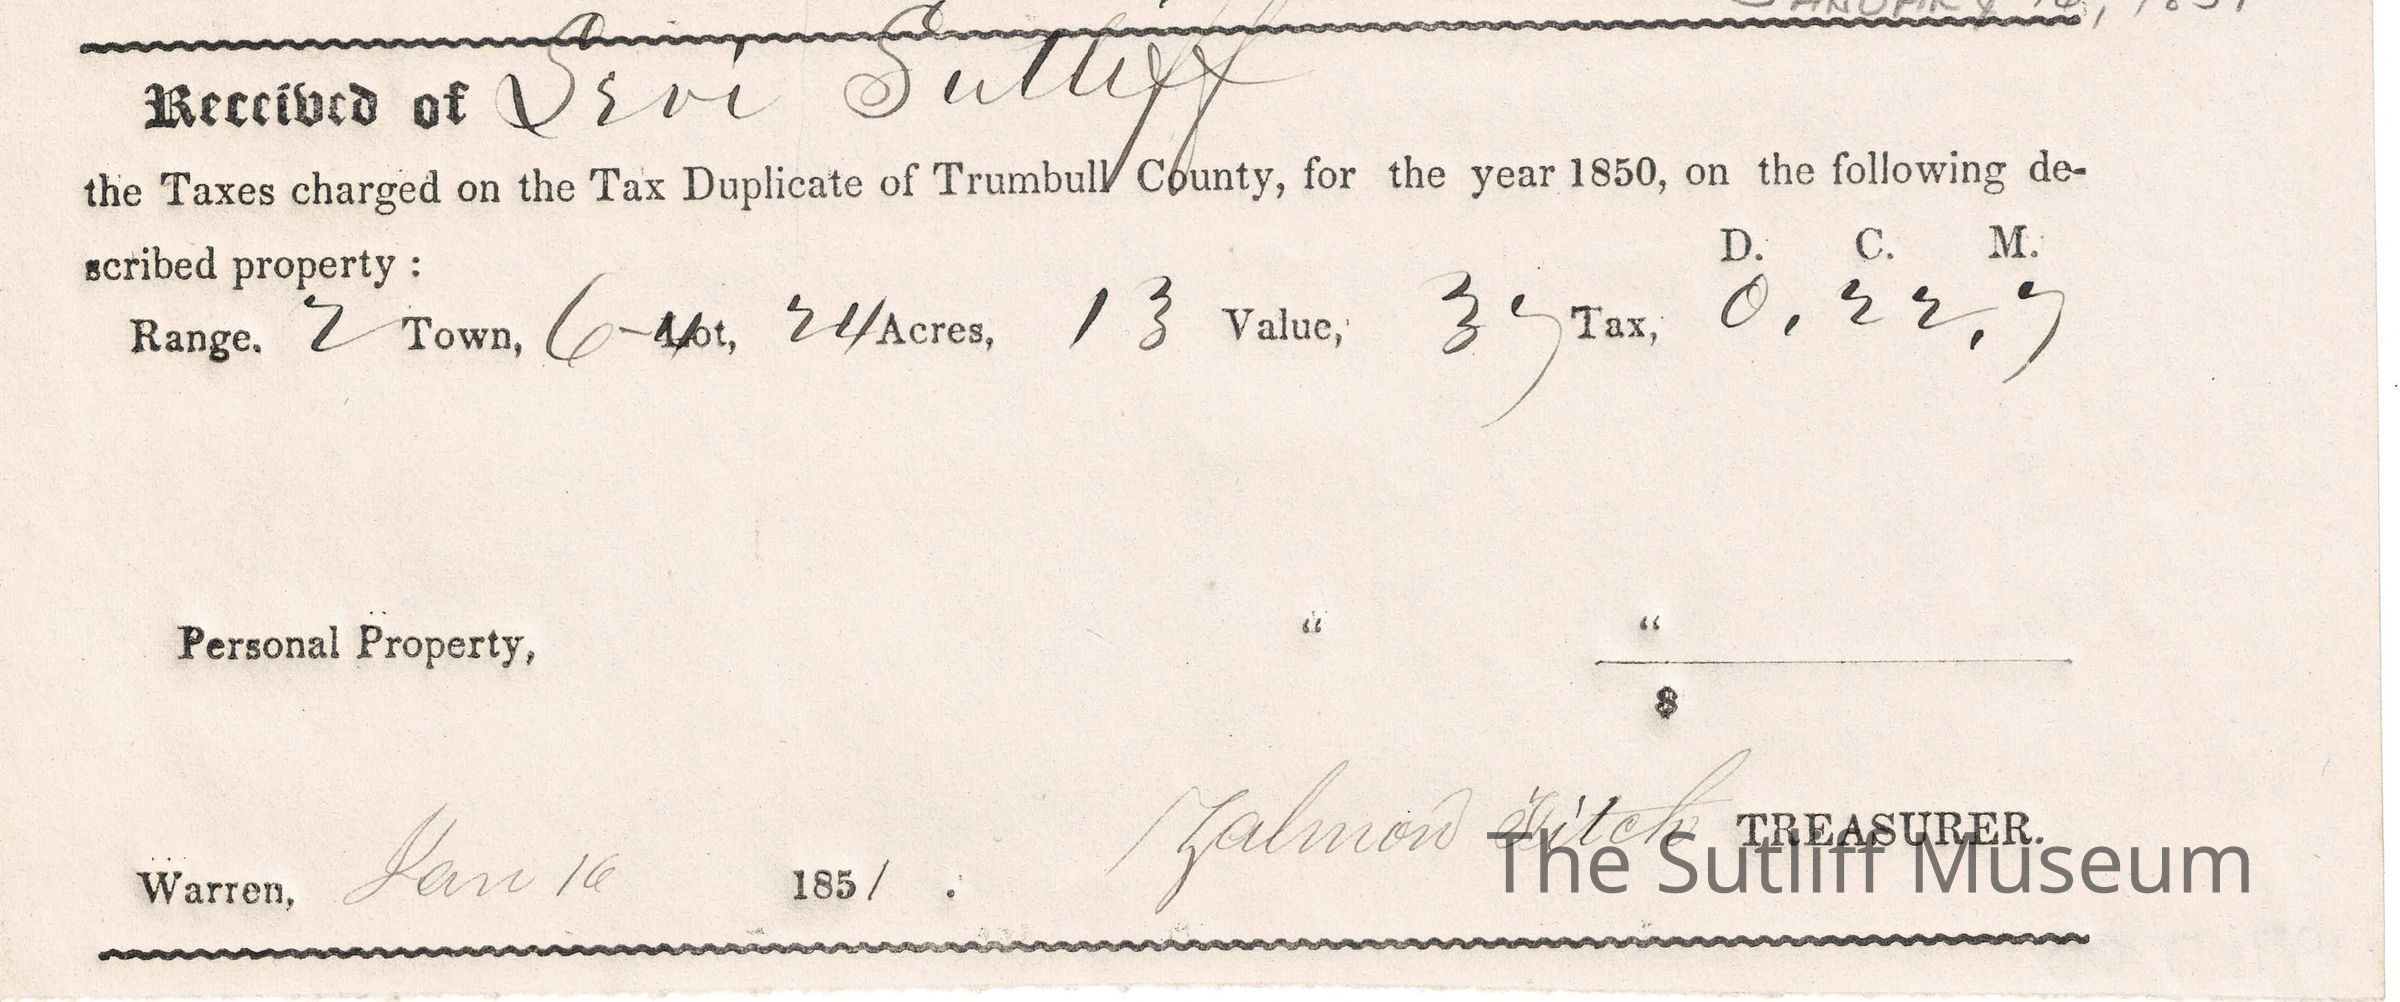 JANUARY 16, 1851
Received of Levi Sutliff
the Taxes charged on the Tax Duplicate of Trumbull County, for the year 1850, on the following de-
scribed property :
D. C. M.
Range. 2 Town, 6-4 Lot, 24 Acres, 13 Value, 37 Tax, 0,22,7
Personal Property, “ “
$
Zalmon Fitch TREASURER.
Warren, Jan 16 1851 .
The Sutliff Museum